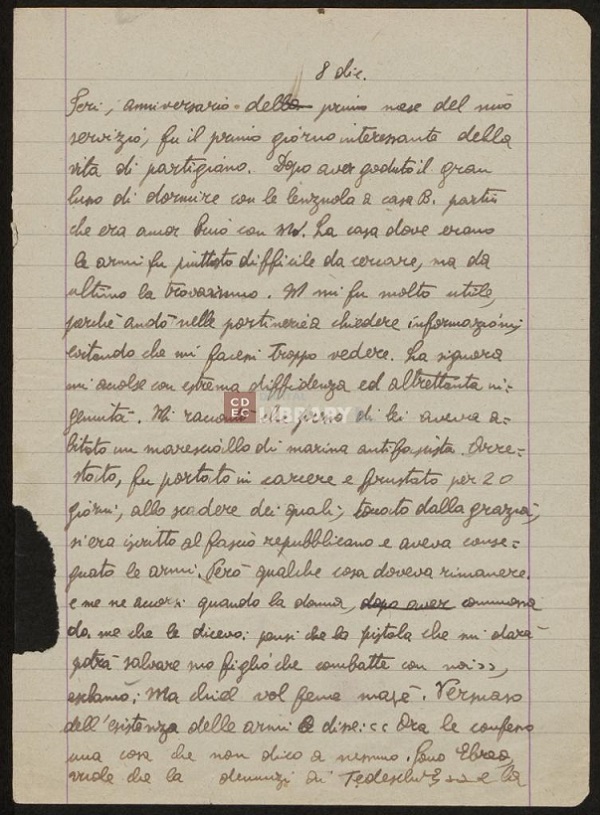 8 dic.
Ieri, anniversario del primo mese del mio
servizio, fu il primo giorno interessante della
vita di partigiano. Dopo aver goduto il gran
lusso di dormire con le lenzuola a casa B. partii
che era ancor buio con M. La casa dove erano
le armi fu piuttosto difficile da cercare, ma da
ultimo la trovammo. M mi fu molto utile,
perchè andò nelle portinerie a chiedere informazioni,
evitando che mi facessi troppo vedere. La signora
mi accolse con estrema diffidenza ed altrettanta in-
genuità. Mi raccontò che presso di lei aveva a-
bitato un maresciallo di marina antifascista. Arre-
stato, fu portato in carcere e frustato per 20
giorni, allo scadere dei quali, toccato dalla grazia,
si era iscritto al fascio repubblicano e aveva conse-
gnato le armi. Però qualche cosa doveva rimanere.
e me ne accorsi quando la donna, dopo aver commossa
da me che le dicevo: pensi che la pistola che mi darà
potrà salvare suo figlio che combatte con noi>>,
esclamò: Ma chiel vol feme
dell'esistenza delle armi e disse: << Ora le confesso
una cosa che non dico a nessuno. Sono Ebreo,
vuole che la denunzi ai Tedeschi? >> e la
CDEC
DIGITAL
LIBRARY